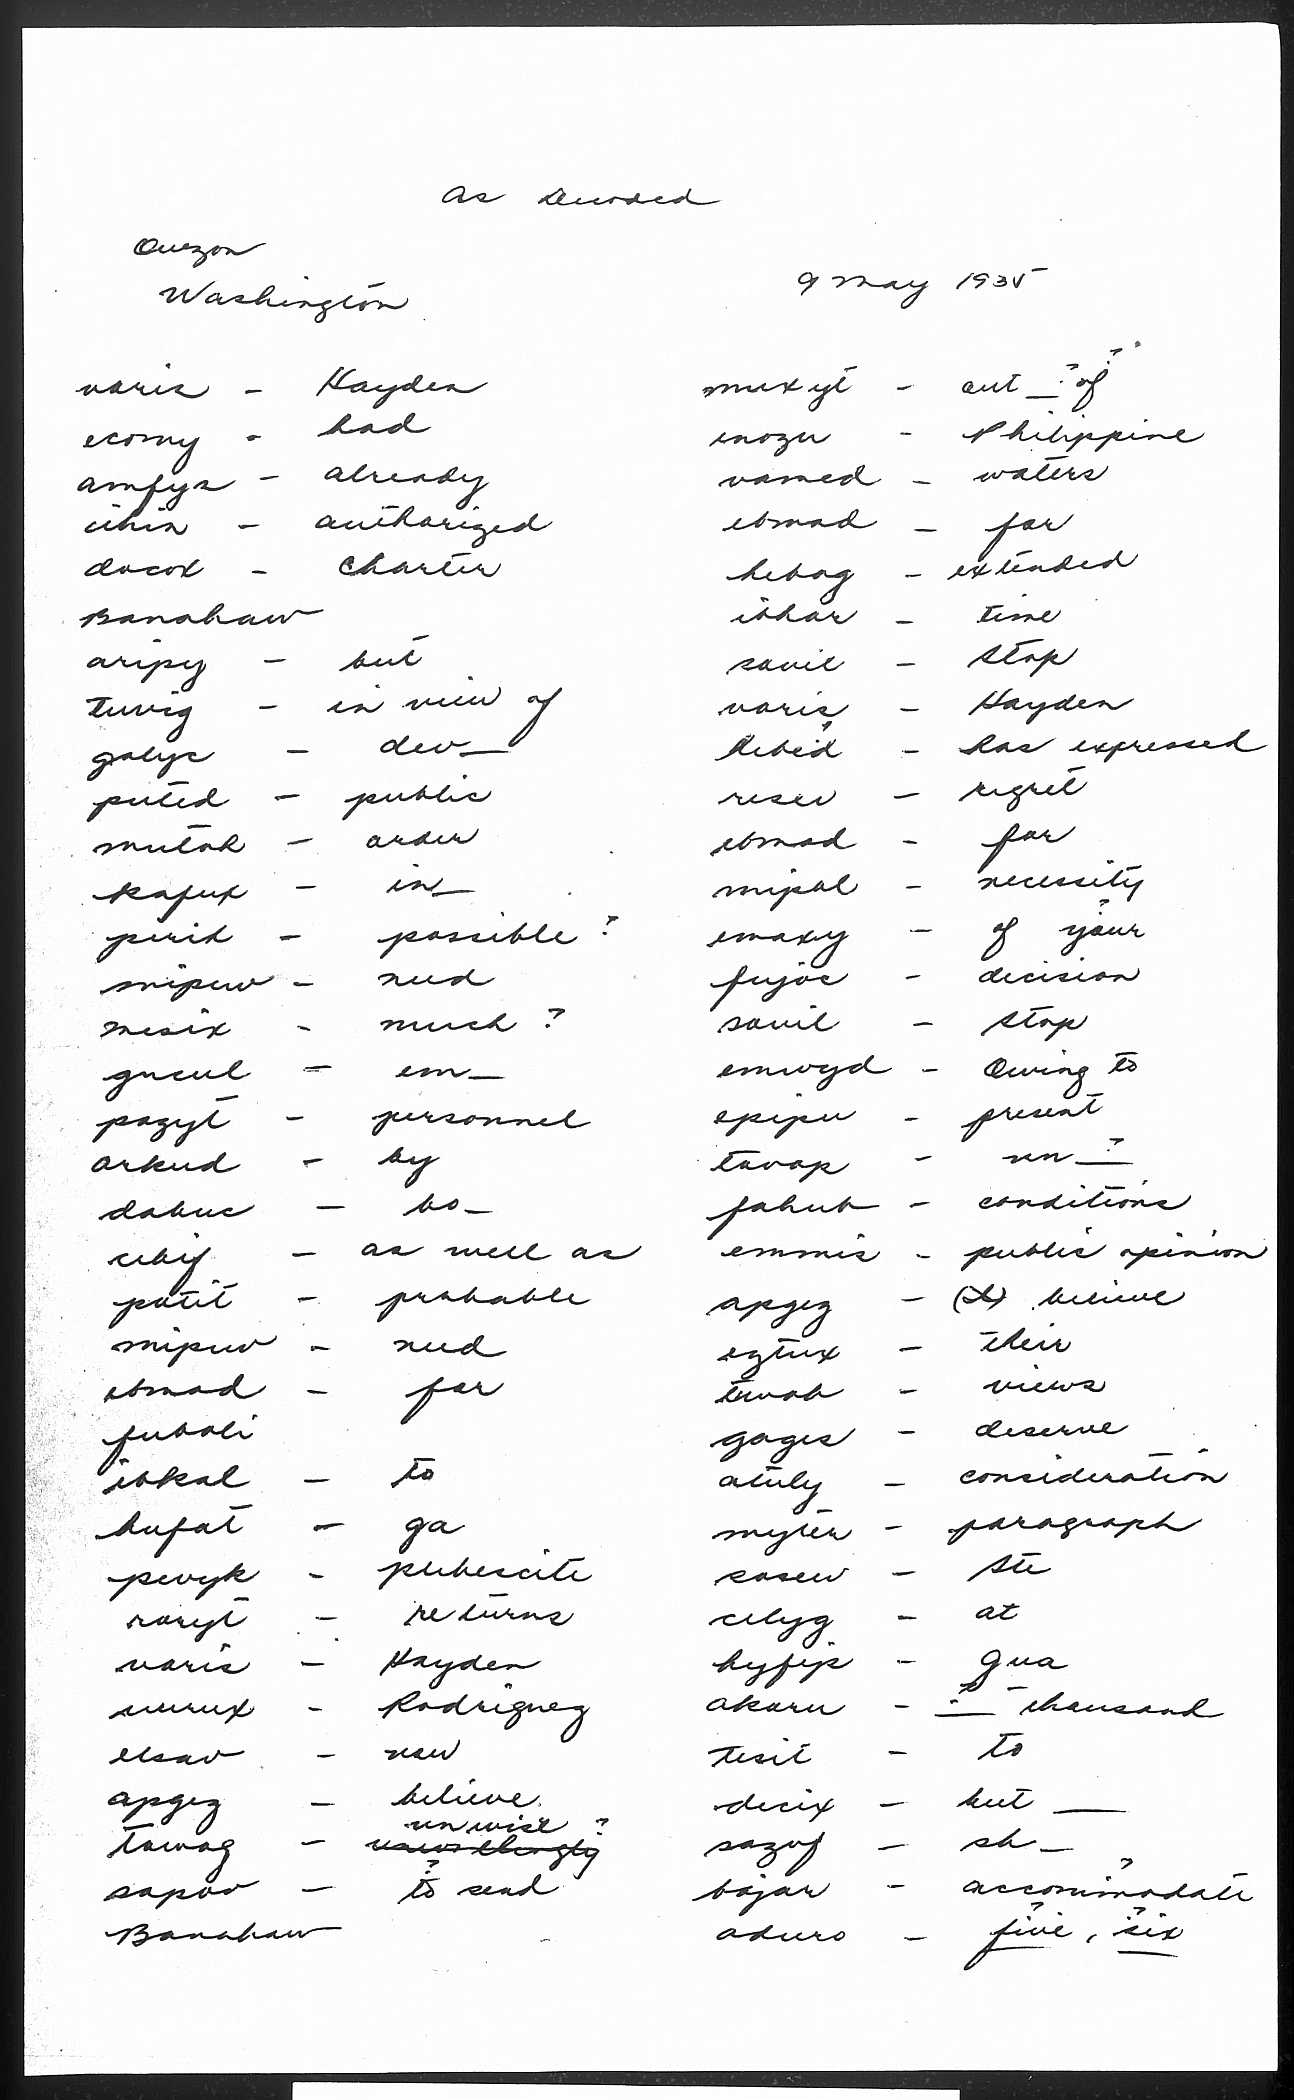 As Decoded
Quezon
Washington
9 May 1935
varis - Hayden
ecomy - had
amfys - already
cihin - authorized
docox - charter
Banahaw
aripy - but
tuvig - in view of
galyc - dev_
puted - public
mutah - order
kafux - in_
pirid - possible ?
mipuw - need
mesix - much ?
gucul - em_
pozyt - personnel
arkud - by
dabuc - bo_
cibif - as well as
patit - probable
mipuw - need
ebmad - for
fubali
ibkal - to
hufat - ga
pevyk - plebescite
roryt - returns
varis - Hayden
uurux - Rodriguez
elsav - now
apgez - believe
tawag - unwise ?
sapov - to send ?
Banahaw
muxyt - out _ ? of ?
enozu - Philippine
vamed - waters
ebmad - for
hebag - extended
ibhar - time
savil - Stop
varis - Hayden
hebid - has expressed
resev - regret
ebmad - for
mipal - necessity
emaxy - of your ?
fujoc - decision
savil - Stop
emwyd - Owing to
epipu - present
tavap - un _?_
fahub - conditions
emmis - public opinion
apgez - (I) believe
eztux - their
tuvah - views
gages - deserve
atuly - consideration
myter - paragraph
sasew - Ste
celyg - at
hyfip - gua
akaru - _?_ thousand
tesit - to
decix - but __
sazof - sh_
bajar - accommodate ?
aduro - five ?, six ?